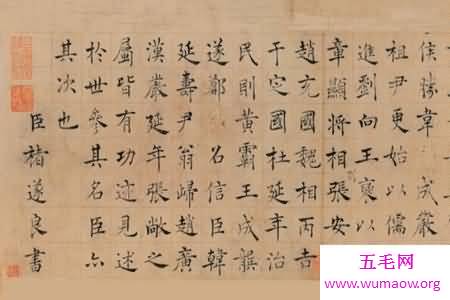 侯勝韋 成嚴
祖尹更始以儒
進劉向王褒以
章顯將相張安
趙充國魏相丙吉
于定國杜延年治
民則黃霸王成龔
遂鄭 名信臣韓
延壽尹翁歸趙廣
漢嚴延年張敞之
屬皆有功迹見述
於世參其名臣亦
其次也
臣褚遂良書
五毛网
www.wumaow.org